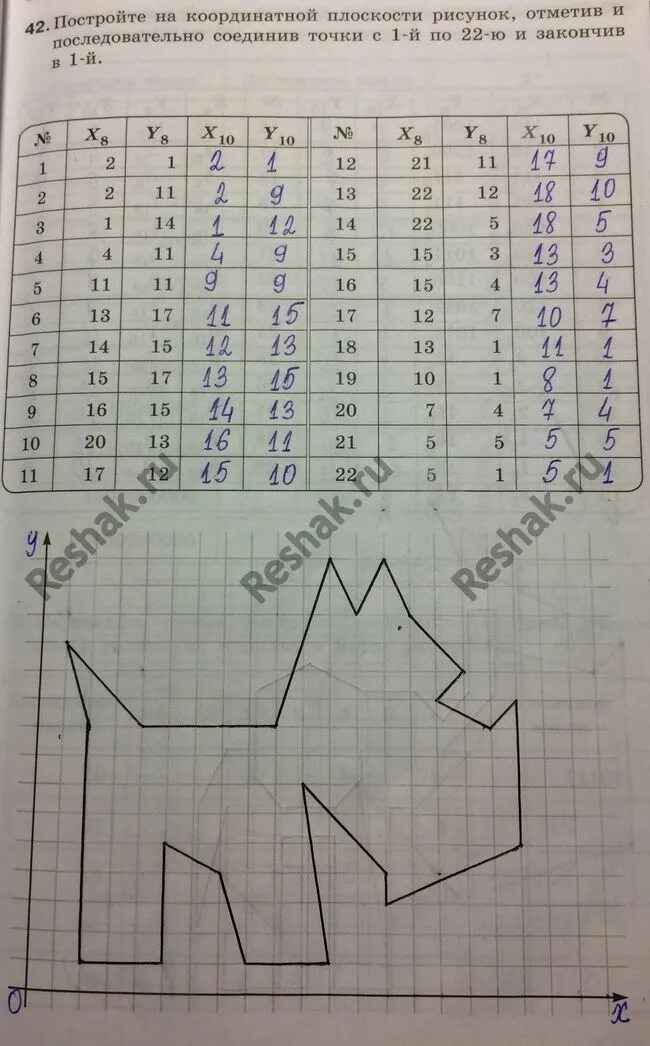 42. Постройте на координатной плоскости рисунок, отметив и
последовательно соединив точки с 1-й по 22-ю и закончив
в 1-й.
№ X8 Y8 X10 Y10 № X8 Y8 X10 Y10
1 2 1 2 1 12 21 11 17 9
2 2 11 2 9 13 22 12 18 10
3 1 14 1 12 14 22 5 18 5
4 4 11 4 9 15 15 3 13 3
5 11 11 9 9 16 15 4 13 4
6 13 17 11 15 17 12 7 10 7
7 14 15 12 13 18 13 1 11 1
8 15 17 13 15 19 10 1 8 1
9 16 15 14 13 20 7 4 7 4
10 20 13 16 11 21 5 5 5 5
11 17 12 15 10 22 5 1 5 1
Reshak.ru
Reshak.ru
Reshak.ru
y
0
x